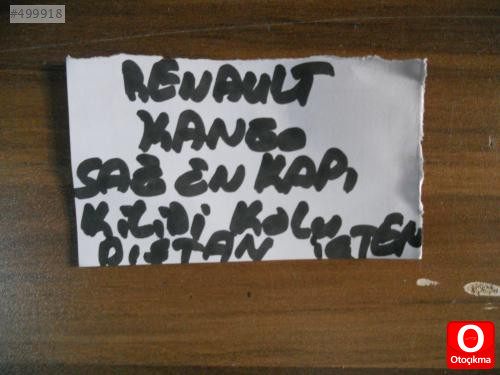 #499918
RENAULT
KANGO
SAĞ EN KAPI
KİLİDİ KOLU
DIŞTAN İÇTEN
O
Otoçıkma